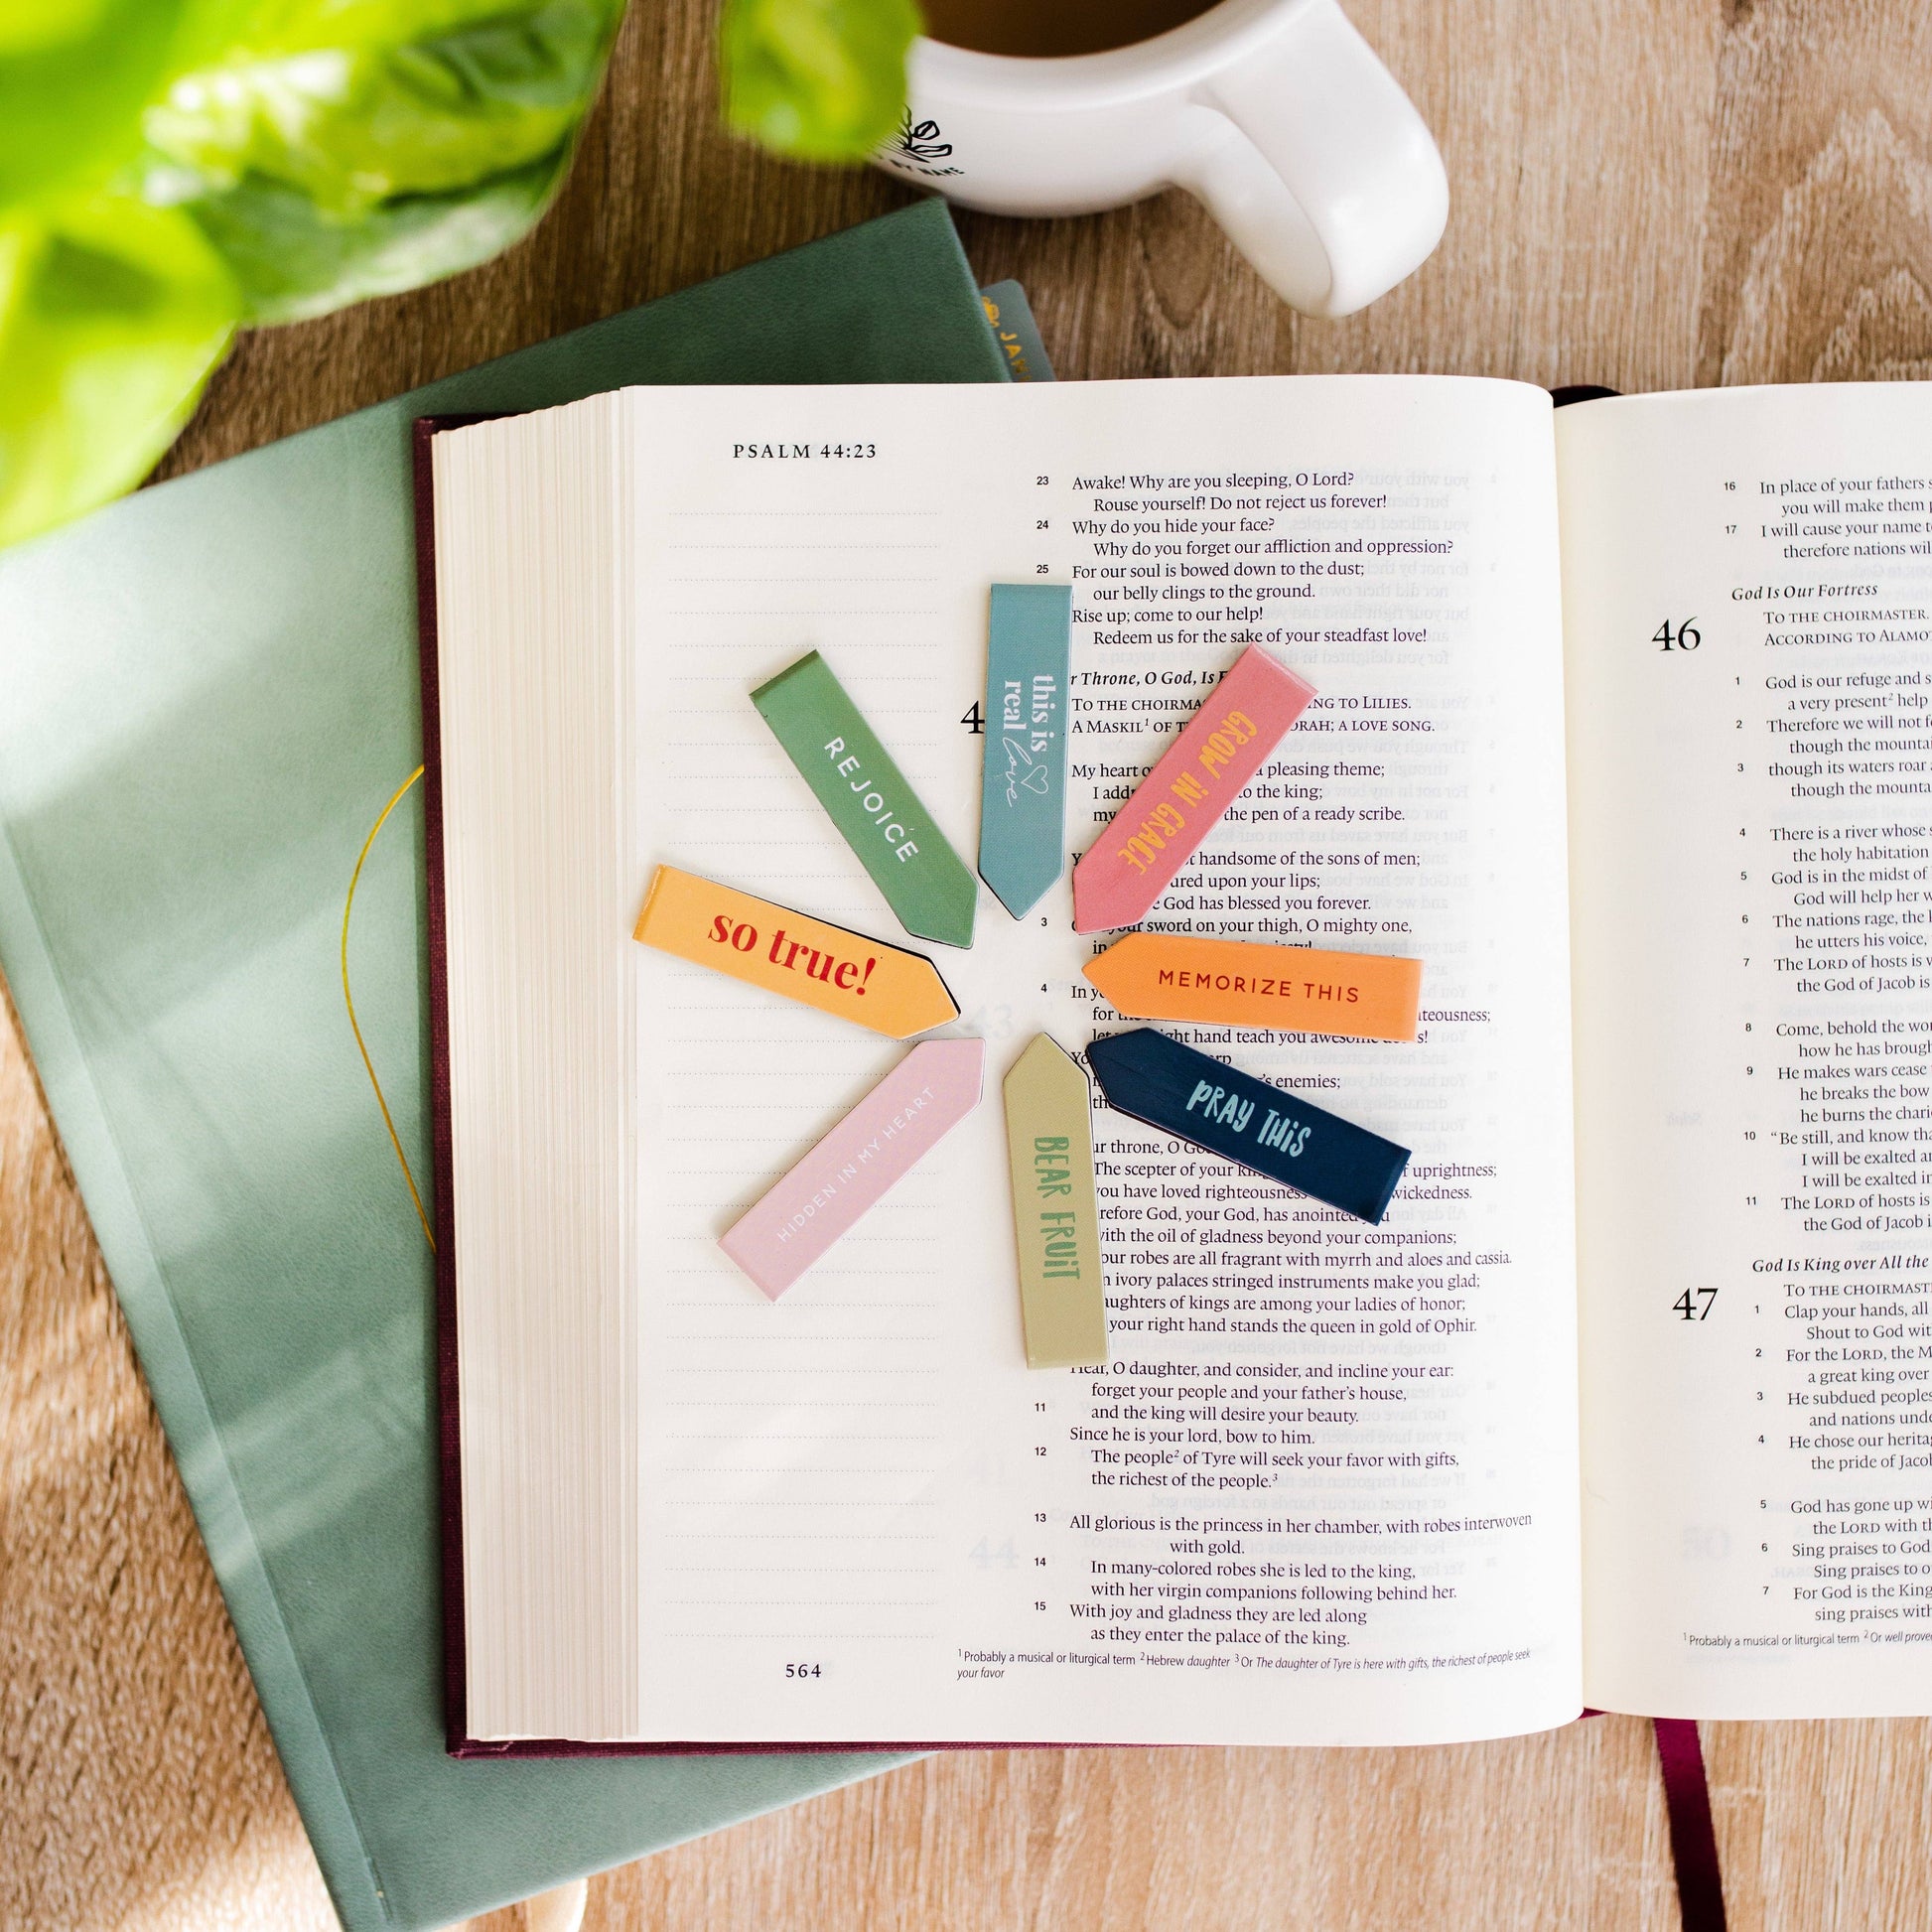 MY NAME
PSALM 44:23
23 Awake! Why are you sleeping, O Lord?
Rouse yourself! Do not reject us forever!
24 Why do you hide your face?
Why do you forget our affliction and oppression?
25 For our soul is bowed down to the dust;
our belly clings to the ground.
Rise up; come to our help!
Redeem us for the sake of your steadfast love!
Throne, O God, Is
TO THE CHOIRMA TO LILIES.
A MASKIL¹ OF A LOVE SONG.
My heart pleasing theme;
I to the king;
my the pen of a ready scribe.
handsome of the sons of men;
upon your lips;
God has blessed you forever.
3 sword on your thigh, O mighty one,
in
4 In
for
right hand teach you awesome
enemies;
throne, O
The scepter of your uprightness;
you have loved righteousness wickedness.
God, your God, has anointed
with the oil of gladness beyond your companions;
your robes are all fragrant with myrrh and aloes and cassia.
ivory palaces stringed instruments make you glad;
daughters of kings are among your ladies of honor;
your right hand stands the queen in gold of Ophir.
Hear, O daughter, and consider, and incline your ear:
forget your people and your father's house,
11 and the king will desire your beauty.
Since he is your lord, bow to him.
12 The people² of Tyre will seek your favor with gifts,
the richest of the people.³
13 All glorious is the princess in her chamber, with robes interwoven
with gold.
14 In many-colored robes she is led to the king,
with her virgin companions following behind her.
15 With joy and gladness they are led along
as they enter the palace of the king.
¹ Probably a musical or liturgical term ² Hebrew daughter ³ Or The daughter of Tyre is here with gifts, the richest of people seek
your favor
564
REJOICE
this is
real love
GROW IN GRACE
so true!
MEMORIZE THIS
HIDDEN IN MY HEART
BEAR FRUIT
PRAY THIS
16 In place of your fathers
you will make them
17 I will cause your name
therefore nations
God Is Our Fortress
46 TO THE CHOIRMASTER.
ACCORDING TO
1 God is our refuge and
a very present² help
2 Therefore we will not
though the
3 though its waters roar
though the
4 There is a river whose
the holy habitation
5 God is in the midst of
God will help her
6 The nations rage, the
he utters his voice,
7 The LORD of hosts is
the God of Jacob is
8 Come, behold the
how he has
9 He makes wars cease
he breaks the bow
he burns the
10 "Be still, and know
I will be exalted
I will be exalted
11 The LORD of hosts is
the God of Jacob
God Is King over All the
47 TO THE
1 Clap your hands, all
Shout to God
2 For the LORD, the
a great king over
3 He subdued
and nations
4 He chose our
the pride of
5 God has gone up
the LORD with
6 Sing praises to God
Sing praises to
7 For God is the
sing praises
¹ Probably a musical or liturgical term ² Or well